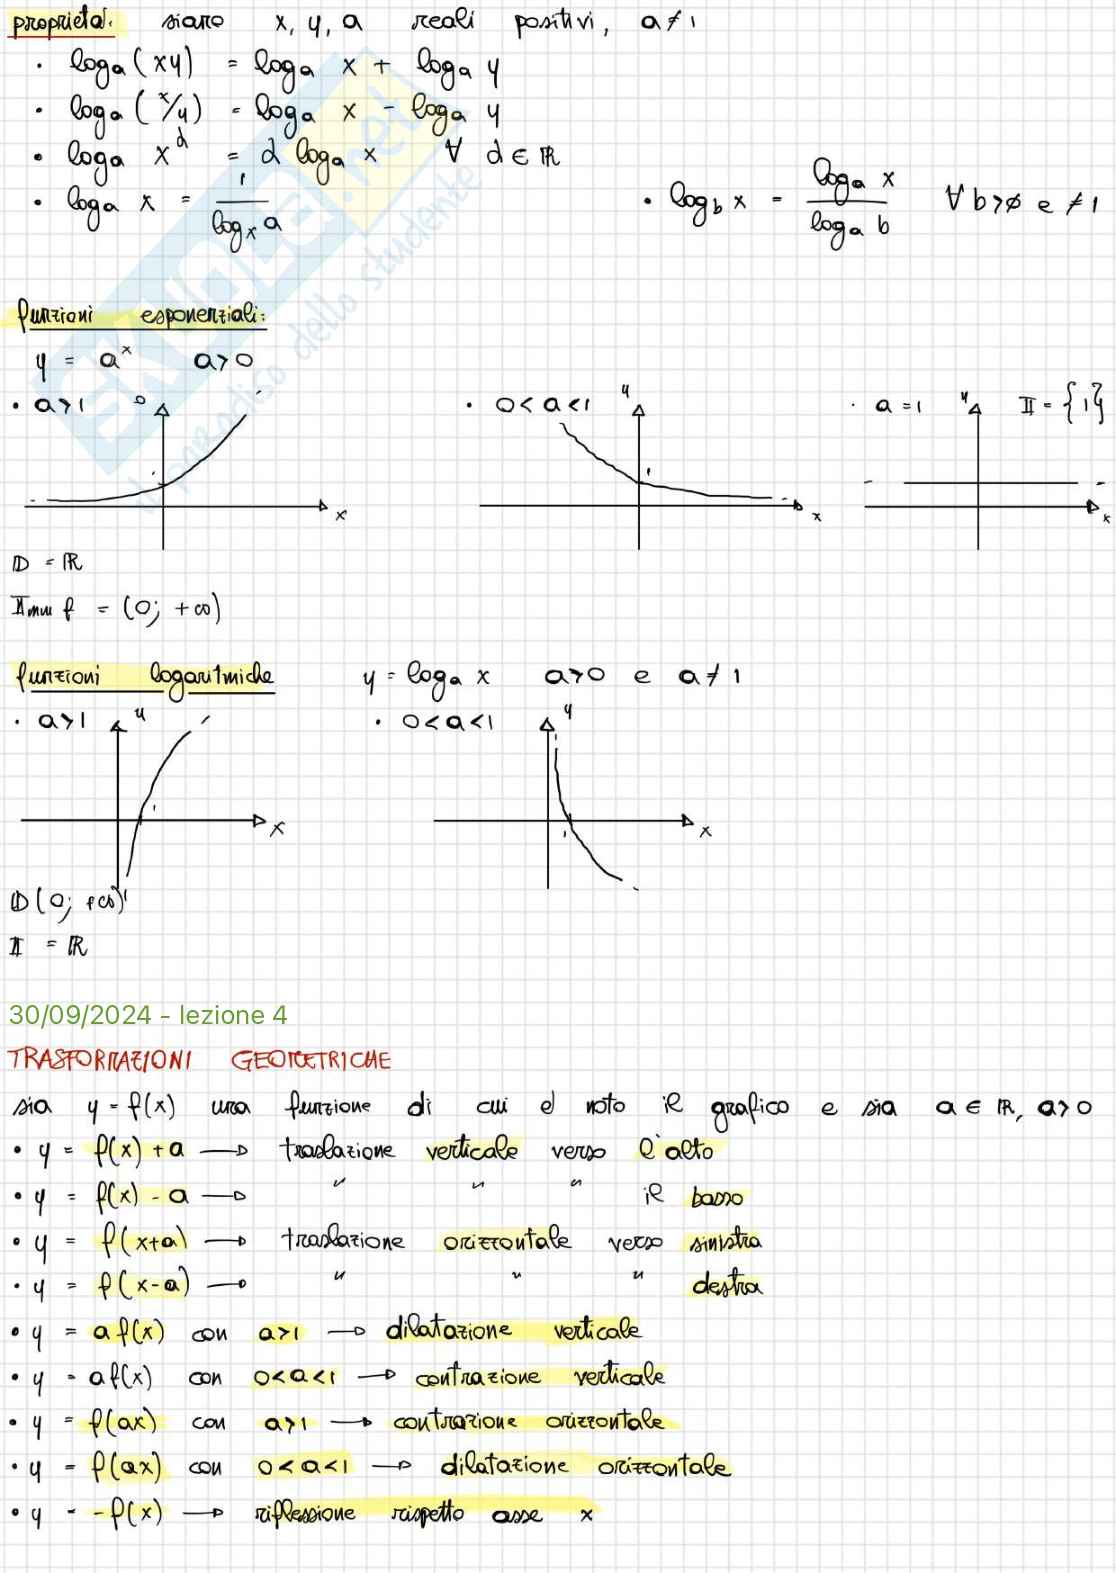 proprietà: siano x, y, a reali positivi, a ≠ 1
• loga (xy) = loga x + loga y
• loga (x/y) = loga x - loga y
• loga x^α = α loga x ∀ α ∈ ℝ
• loga x = 1 / logx a • logb x = loga x / loga b ∀ b > 0 e ≠ 1
funzioni esponenziali:
y = a^x a > 0
• a > 1 • 0 < a < 1 y • a = 1 y II = {1}
1 1
x x x
ID = ℝ
IImm f = (0; +∞)
funzioni logaritmiche y = loga x a > 0 e a ≠ 1
• a > 1 y • 0 < a < 1 y
1 1
x x
ID (0; +∞)
II = ℝ
30/09/2024 - lezione 4
TRASFORMAZIONI GEOMETRICHE
sia y = f(x) una funzione di cui è noto il grafico e sia a ∈ ℝ, a > 0
• y = f(x) + a → traslazione verticale verso l'alto
• y = f(x) - a → " " " il basso
• y = f(x+a) → traslazione orizzontale verso sinistra
• y = f(x-a) → " " " destra
• y = a f(x) con a > 1 → dilatazione verticale
• y = a f(x) con 0 < a < 1 → contrazione verticale
• y = f(ax) con a > 1 → contrazione orizzontale
• y = f(ax) con 0 < a < 1 → dilatazione orizzontale
• y = - f(x) → riflessione rispetto asse x
SKUOLA.net
il paradiso dello studente